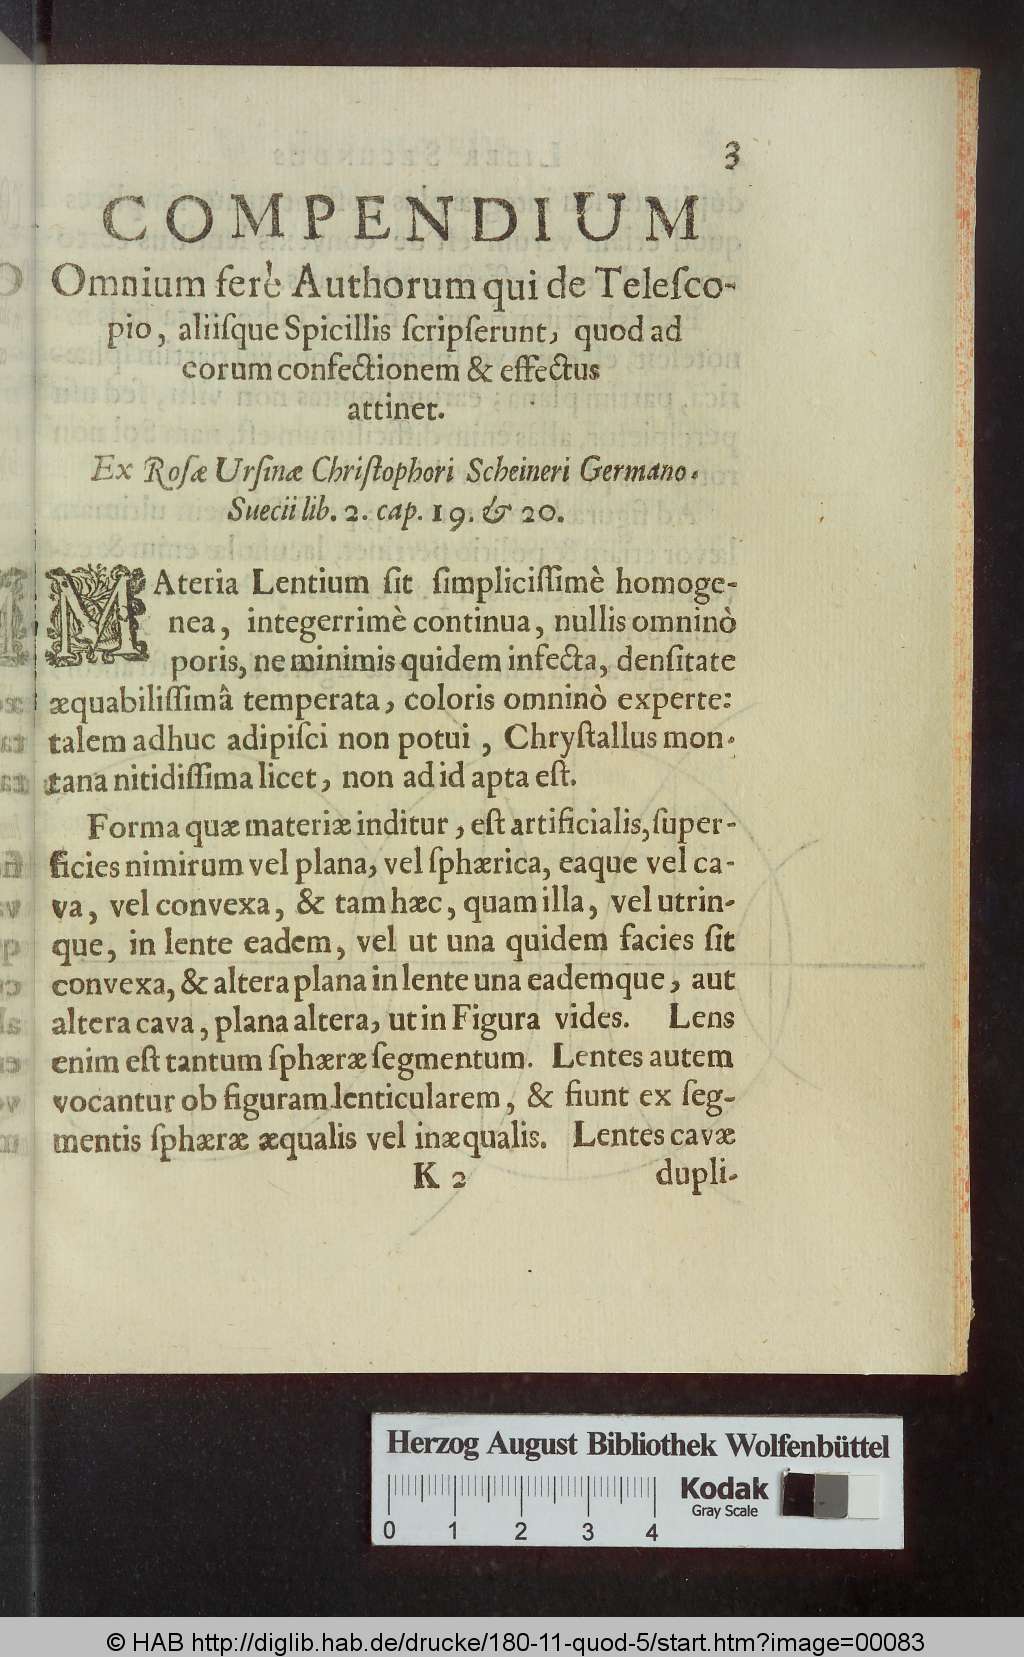 3
COMPENDIUM
Omnium ferè Authorum qui de Teleſco-
pio, aliiſque Spicillis ſcripſerunt, quod ad
eorum confectionem & effectus
attinet.
Ex Roſæ Urſinæ Chriſtophori Scheineri Germano-
Suecii lib. 2. cap. 19. & 20.
MAteria Lentium ſit ſimpliciſſimè homoge-
nea, integerrimè continua, nullis omninò
poris, ne minimis quidem infecta, denſitate
æquabiliſſimâ temperata, coloris omninò experte:
talem adhuc adipiſci non potui, Chryſtallus mon-
tana nitidiſſima licet, non ad id apta eſt.
Forma quæ materiæ inditur, eſt artificialis, ſuper-
ficies nimirum vel plana, vel ſphærica, eaque vel ca-
va, vel convexa, & tam hæc, quam illa, vel utrin-
que, in lente eadem, vel ut una quidem facies ſit
convexa, & altera plana in lente una eademque, aut
altera cava, plana altera, ut in Figura vides. Lens
enim eſt tantum ſphæræ ſegmentum. Lentes autem
vocantur ob figuram lenticularem, & fiunt ex ſeg-
mentis ſphæræ æqualis vel inæqualis. Lentes cavæ
K 2 dupli-
Herzog August Bibliothek Wolfenbüttel
Kodak
Gray Scale
0 1 2 3 4
© HAB http://diglib.hab.de/drucke/180-11-quod-5/start.htm?image=00083